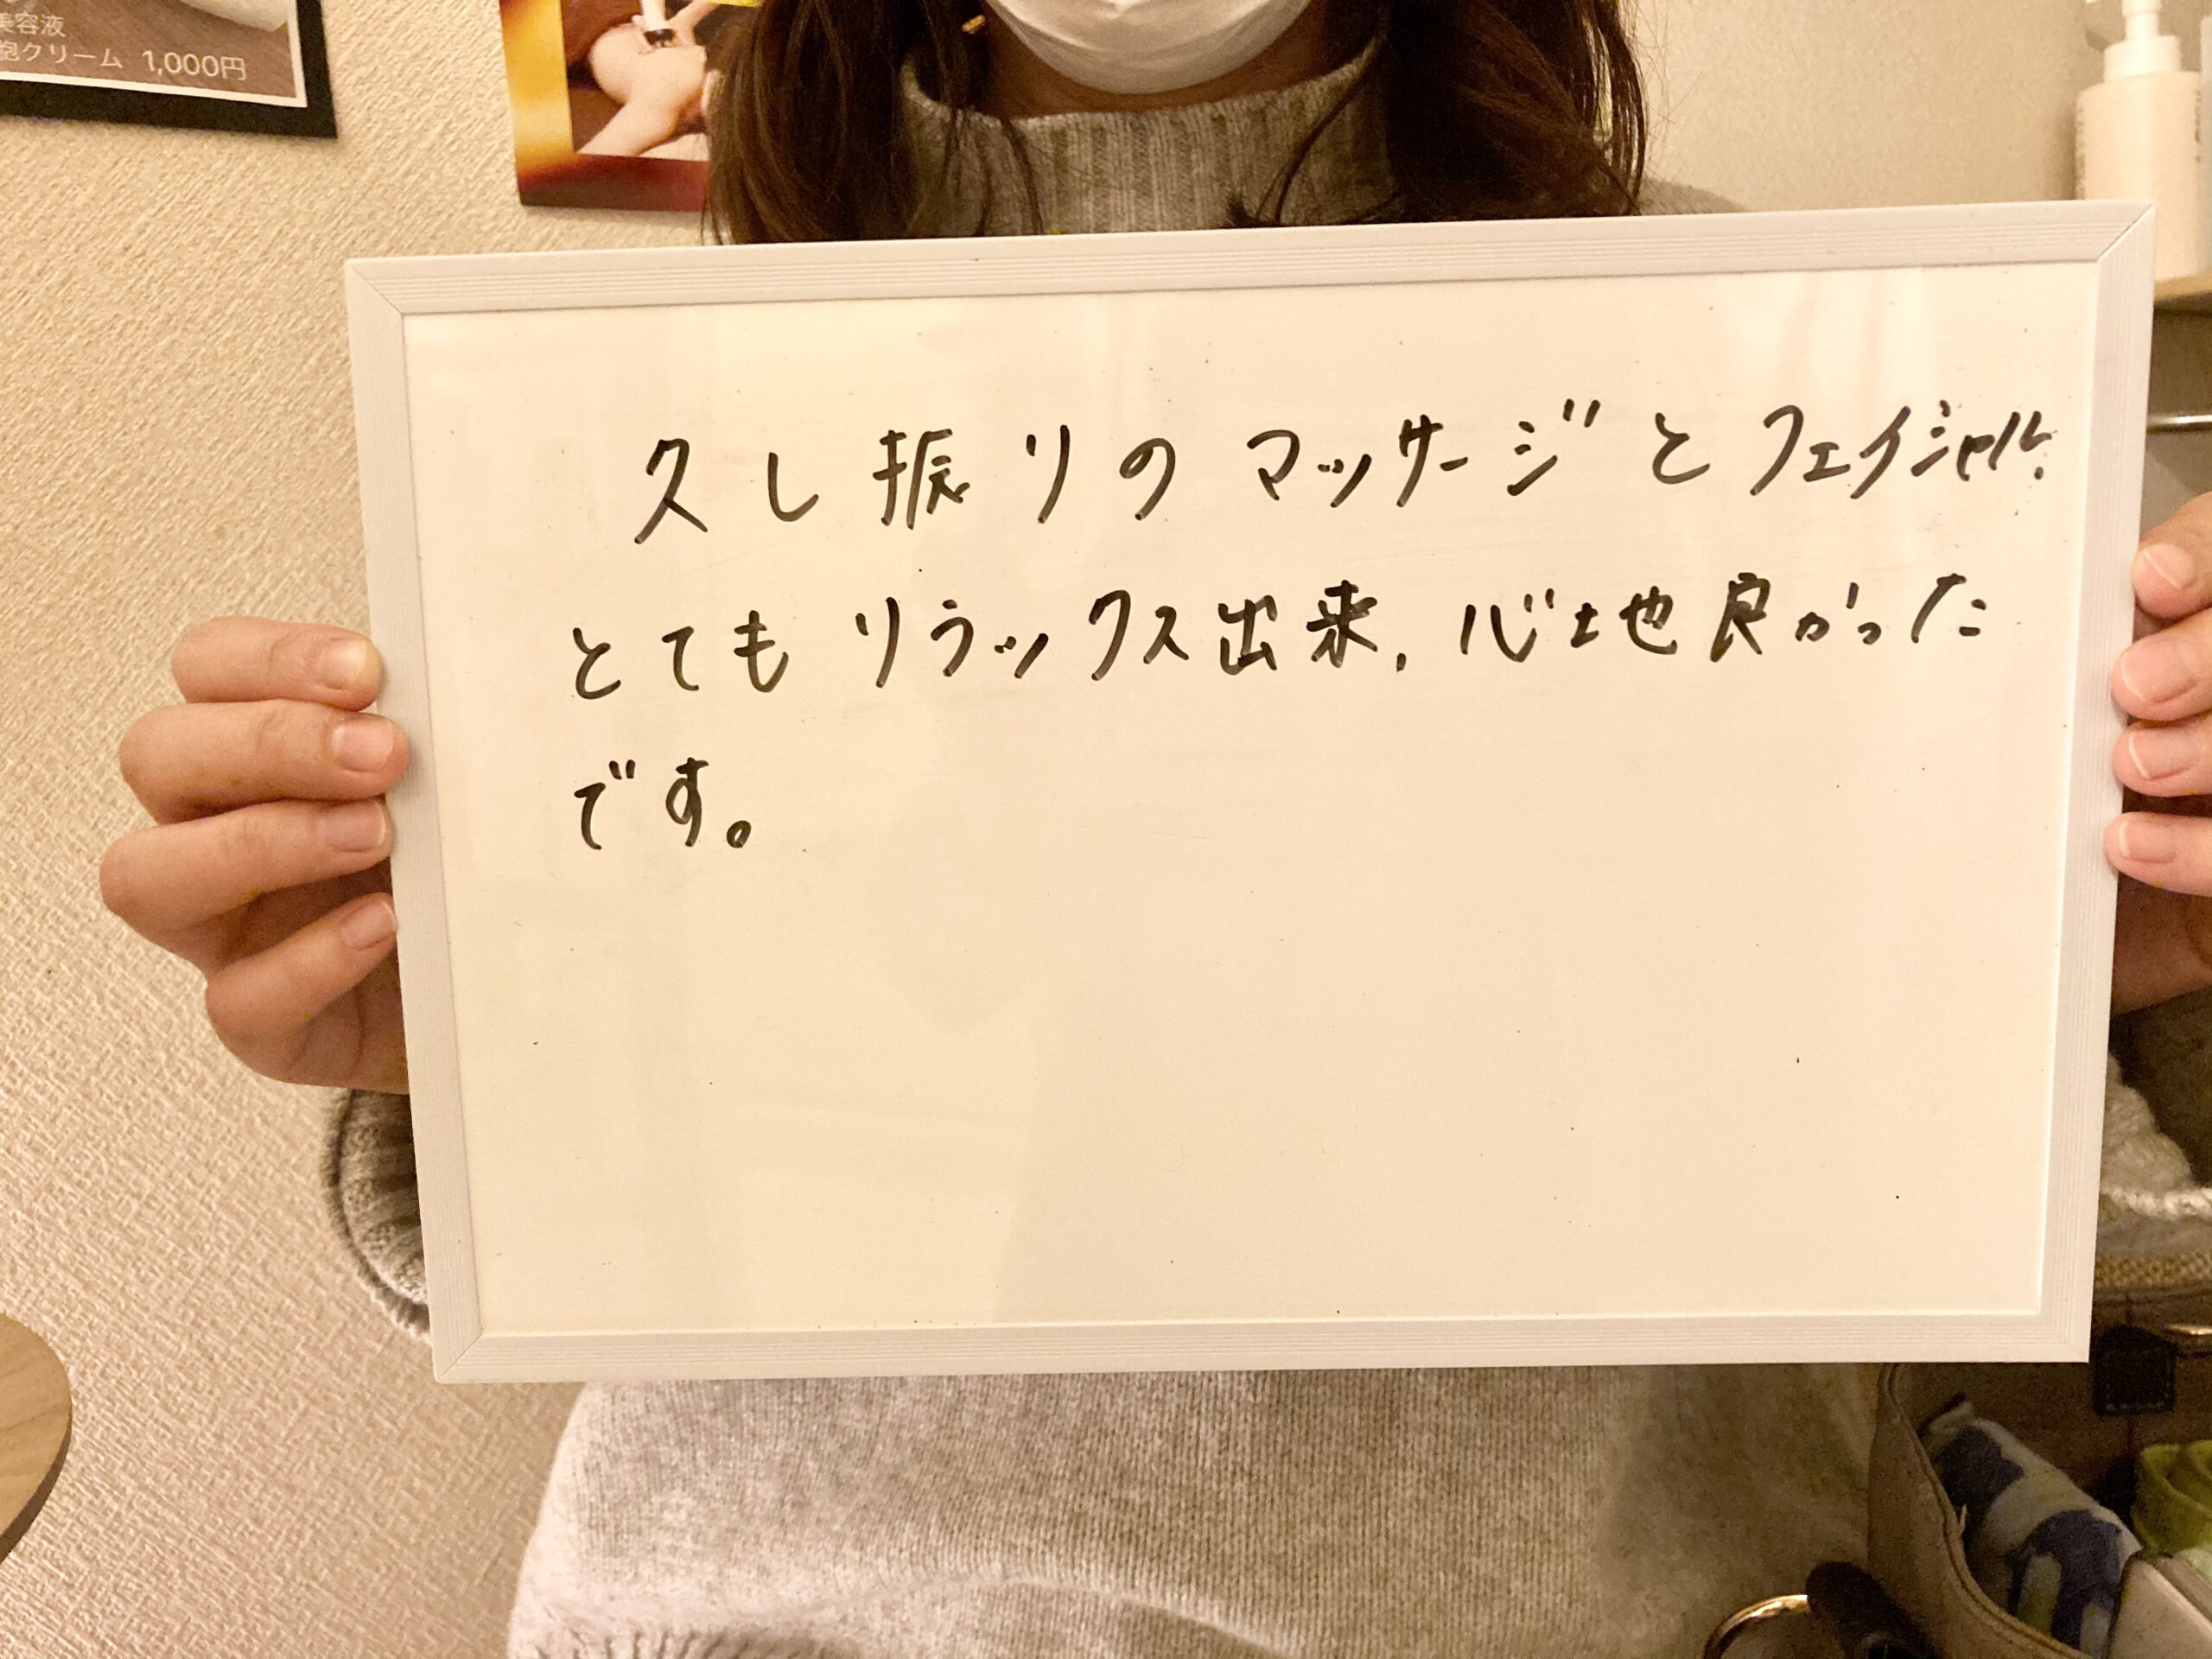 美容液
胞クリーム 1,000円
久し振りのマッサージとフェイシャル.
とてもリラックス出来, 心地良かった
です。